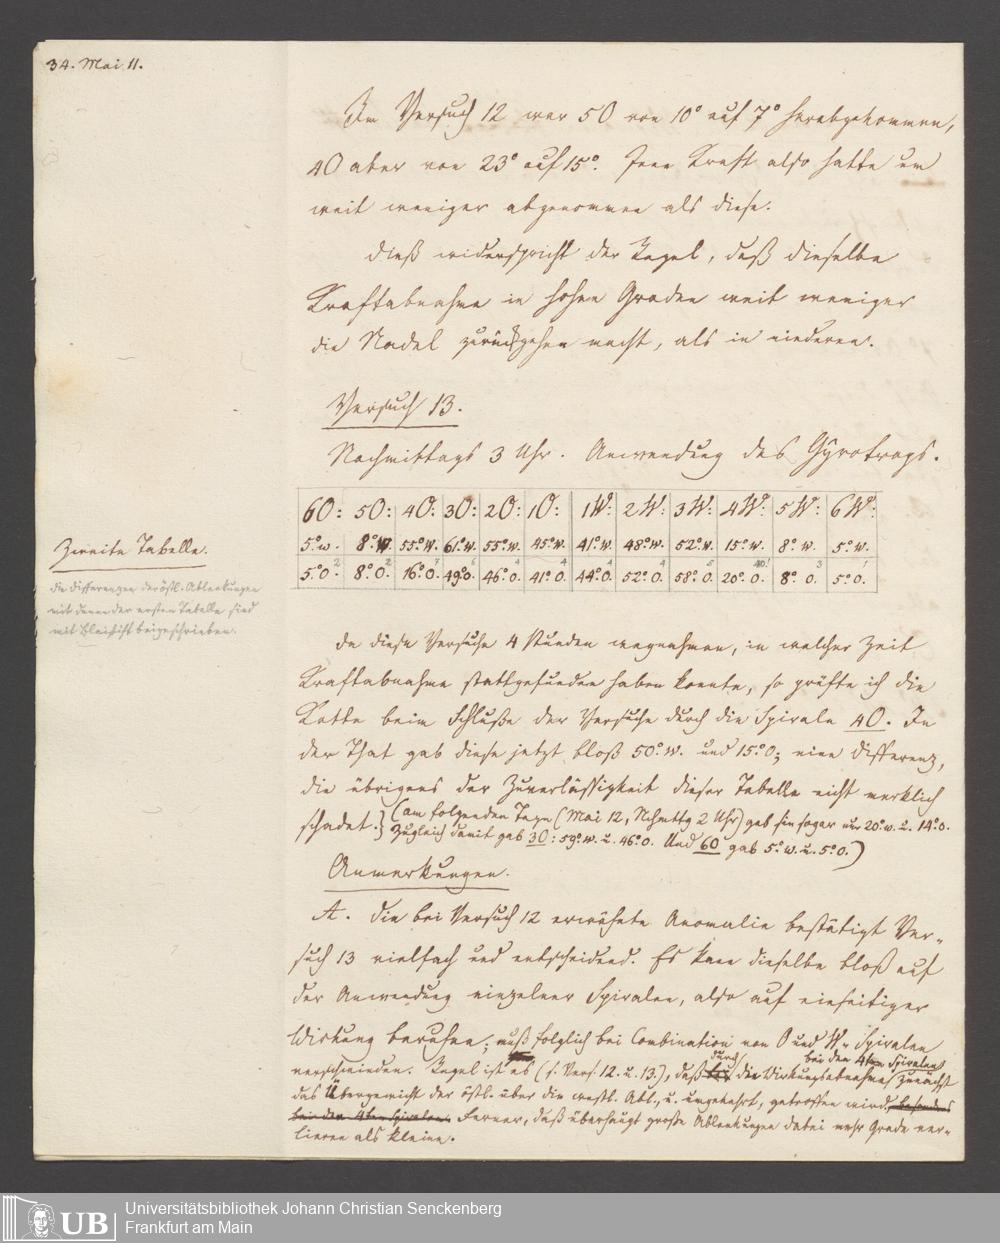 34. Mai 11.
Im Versuch 12 war 5O von 10° auf 7° herabgekommen,
4O aber von 23° auf 15°. Jene Kraft also hatte um
weit weniger abgenommen als diese.
Dieß widerspricht der Regel, daß dieselbe
Kraftabnahme in hohen Graden weit weniger
die Nadel zurückgehen macht, als in niederen.
Versuch 13.
Nachmittags 3 Uhr. Anwendung des Gyrotrops.
6O: 5O: 4O: 3O: 2O: 1O: 1W: 2W: 3W: 4W: 5W: 6W:
5°w. 8°w. 55°w. 61°w. 55°w. 45°w. 41°w. 48°w. 52°w. 15°w. 8° w. 5°w.
5°o. 8°o. 16°o. 49°o. 46°o. 41°o. 44°o. 52°o. 58°o. 20°o. 8° o. 5°o.
Zweite Tabelle.
Die Differenzen der östl. Ablenkungen
mit denen der ersten Tabelle sind
mit Bleistift beigeschrieben.
Da diese Versuche 4 Stunden wegnahmen, in welcher Zeit
Kraftabnahme stattgefunden haben konnte, so prüfte ich die
Kette beim Schluße der Versuche durch die Spirale 4O. In
der That gab diese jetzt bloß 50°w. und 15°o; eine Differenz,
die übrigens der Zuverlässigkeit dieser Tabelle nicht merklich
schadet.} (am folgenden Tage (Mai 12, Nchmttg 2 Uhr) gab sie sogar nur 20°w. u. 14°o.
Zugleich damit gab 3O: 59°w. u. 46°o. Und 6O gab 5°w. u. 5°o.)
Anmerkungen.
A. Die bei Versuch 12 erwähnte Anomalie bestätigt Ver-
such 13 vielfach und entscheidend. Es kann dieselbe bloß auf
der Anwendung einzelner Spiralen, also auf einseitiger
Wirkung beruhen; muß folglich bei Combination von O und W-Spiralen
verschwinden. Regel ist es (s. Vers. 12. u. 13.), daß durch die Wirkungsabnahme bei den 4ten Spiralen zunächst
das Übergewicht der östl. über die westl. Abl., u. umgekehrt, getroffen wird, besonders
bei den 4ten Spiralen. Ferner, daß überhaupt große Ablenkungen dabei mehr Grade ver-
lieren als kleine.
Universitätsbibliothek Johann Christian Senckenberg
Frankfurt am Main
UB